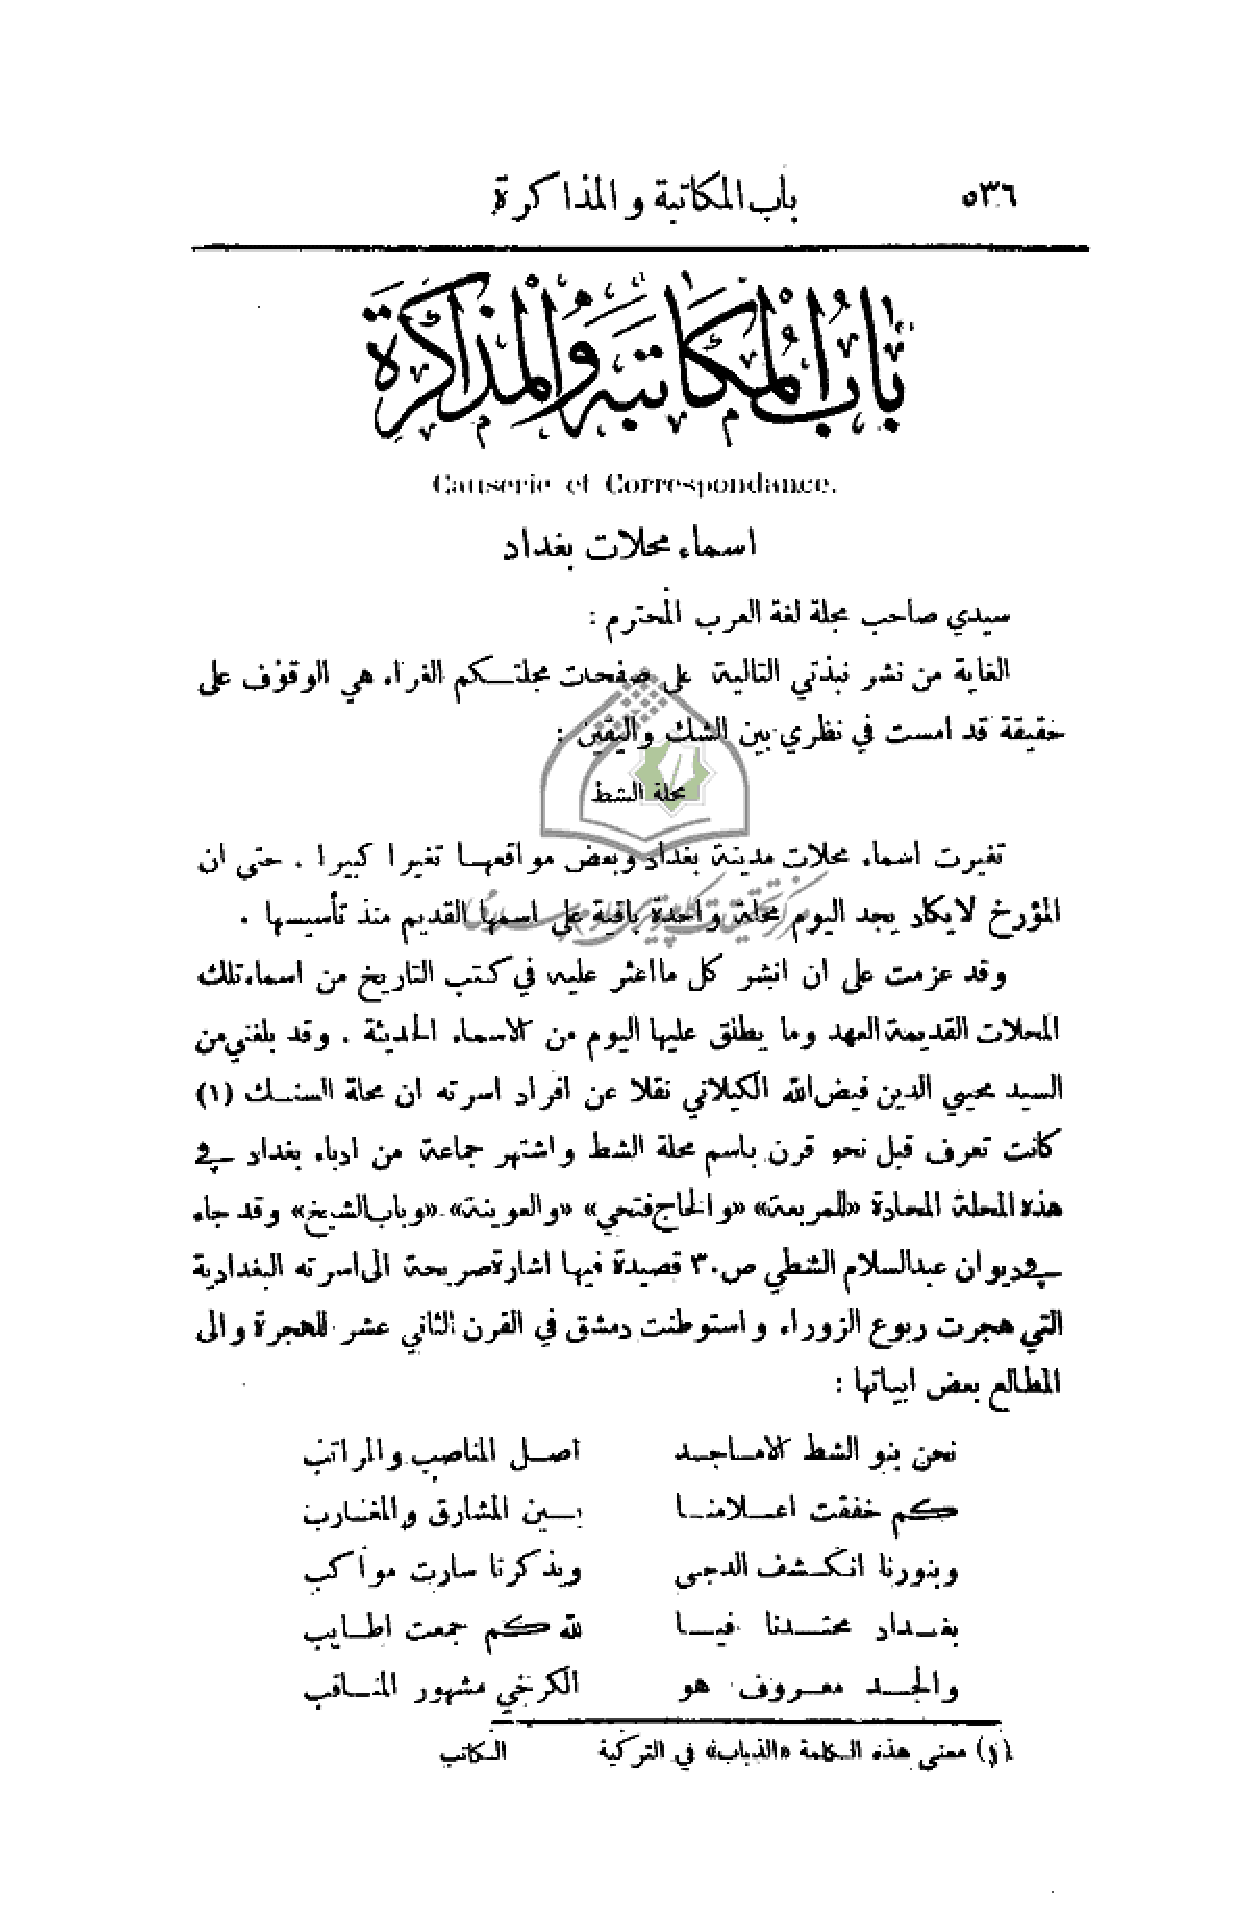 ٥٣٦
باب المكاتبة والمذاكرة
بَابُ الْمُكَاتَبَةِ وَالْمُذَاكَرَةِ
Causerie et Correspondance.
اسماء محلات بغداد
سيدي صاحب مجلة لغة العرب المحترم :
الغاية من نشر نبذتي التالية على صفحات مجلتكم الغراء هي الوقوف على
حقيقة قد امست في نظري بين الشك واليقين :
محلة الشط
تغيرت اسماء محلات مدينة بغداد وبعض مواقعها تغيرا كبيرا . حتى ان
المؤرخ لا يكاد يجد اليوم محلة واحدة باقية على اسمها القديم منذ تأسيسها .
وقد عزمت على ان انشر كل ما اعثر عليه في كتب التاريخ من اسماء تلك
المحلات القديمة العهد وما يطلق عليها اليوم من الاسماء الحديثة . وقد بلغني من
السيد محيي الدين فيض الله الكيلاني نقلا عن افراد اسرته ان محلة السنك (١)
كانت تعرف قبل نحو قرن باسم محلة الشط واشتهر جماعة من ادباء بغداد في
هذه المحلة المحادة «للمربعة» «والحاج فتحي» «والعوينة» «وباب الشيخ» وقد جاء
في ديوان عبدالسلام الشطي ص٣٠ قصيدة فيها اشارة صريحة الى اسرته البغدادية
التي هجرت ربوع الزوراء واستوطنت دمشق في القرن الثاني عشر للهجرة والى
المطالع بعض ابياتها :
نحن بنو الشط الاماجد اصل المناصب والمراتب
كم خفقت اعلامنا بين المشارق والمغارب
وبنورنا انكشف الدجى وبذكرنا سارت مواكب
بغداد محتدنا فيا لله كم جمعت اطايب
والجد معروف هو الكرخي مشهور المناقب
(١) معنى هذه الكلمة «الذباب» في التركية الكاتب